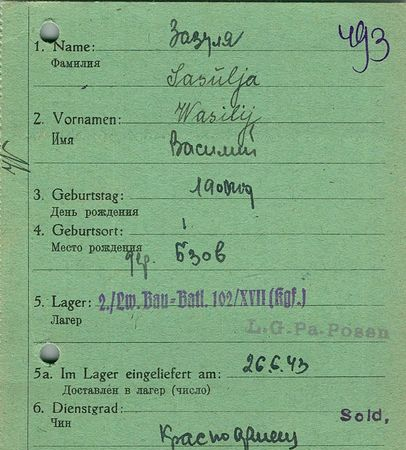 493
Зазуля
1. Name:
Фамилия
Sasulja
2. Vornamen: Wasilij
Имя
Василий
3. Geburtstag: 1900 год
День рождения
4. Geburtsort:
Место рождения дер. Бзов
5. Lager: 2./Lw.Bau=Batl. 102/XVII (Kgf.)
Лагер
L.G.Pa. Posen
5a. Im Lager eingeliefert am: 26.6.43
Доставлен в лагер (число)
6. Dienstgrad: Sold,
Чин
Красноармеец